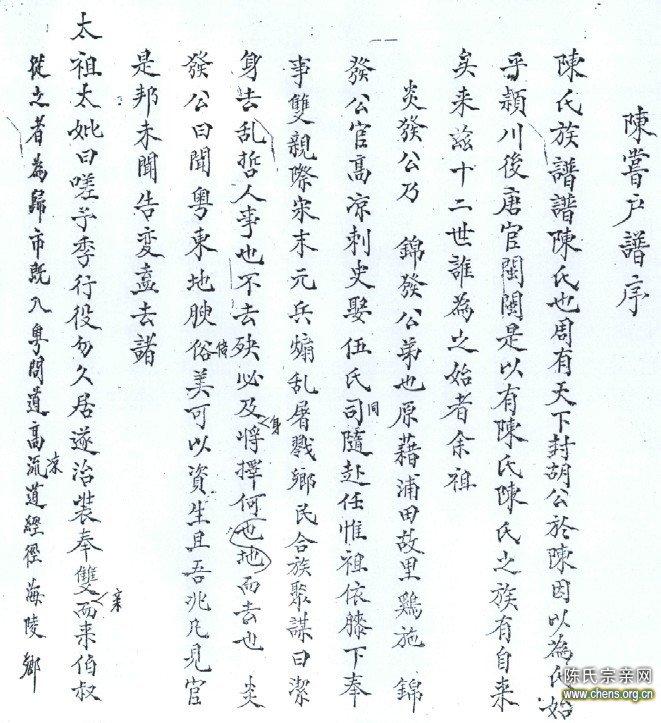 陳嘗戶譜序
陳氏族譜譜陳氏也周有天下封胡公於陳因以為氏始
乎潁川後唐宦閩閩是以有陳氏陳氏之族有自来
矣来茲十二世誰為之始者余祖
炎發公乃 錦發公弟也原藉浦田故里鷄施 錦
發公官高凉刺史娶伍氏司同隨赴任惟祖依膝下奉
事雙親際宋末元兵煽乱屠戮鄉民合族聚謀曰潔
身去乱哲人事也不去殃必及身将擇何也地而去也 炎
發公曰聞粤東地腴俗美可以資生且吾兆凡見官
是邦未聞告变盍去諸
太祖太妣曰嗟予季行役勿久居遂治裝奉雙親而来伯叔
從之者為歸市既入粤問道高凉流道經徑海陵鄉
陈氏宗亲网
www.chens.org.cn